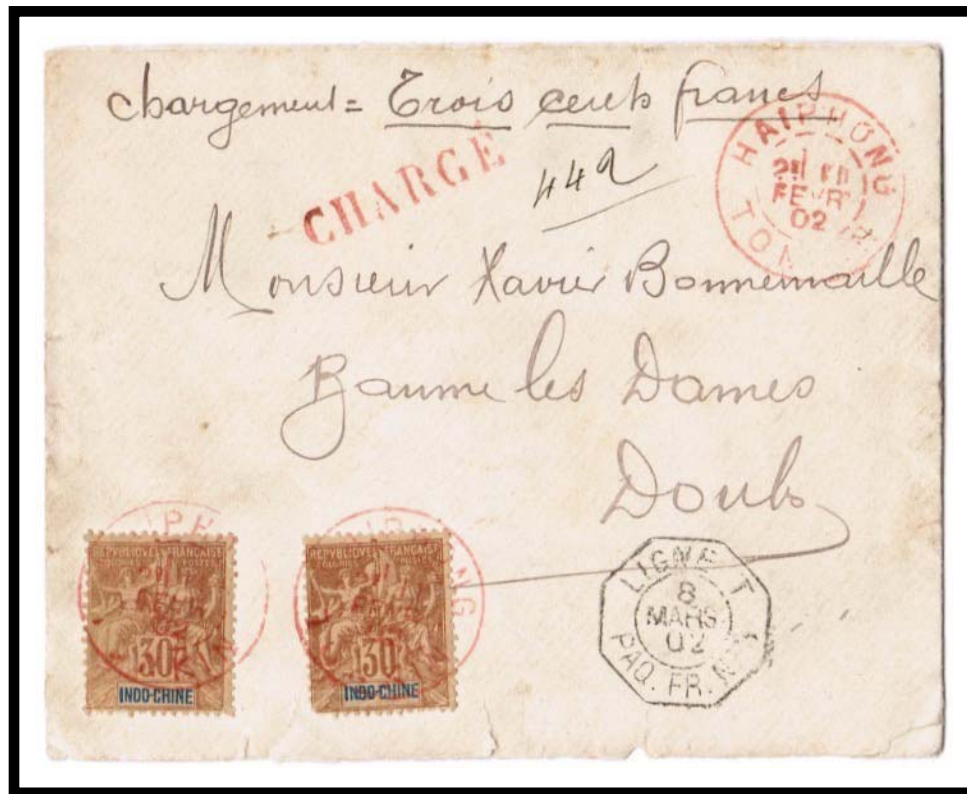 chargement = Trois cents francs
CHARGÉ
442
HAIPHONG
FEVR
02
TON
Monsieur Xavier Bonnemaille
Baume les Dames
Doubs
REPUBLIQUE FRANÇAISE
COLONIES POSTES
30
INDO-CHINE
REPUBLIQUE FRANÇAISE
COLONIES
30
INDO-CHINE
LIGNE T
8
MARS
02
PAQ. FR. N